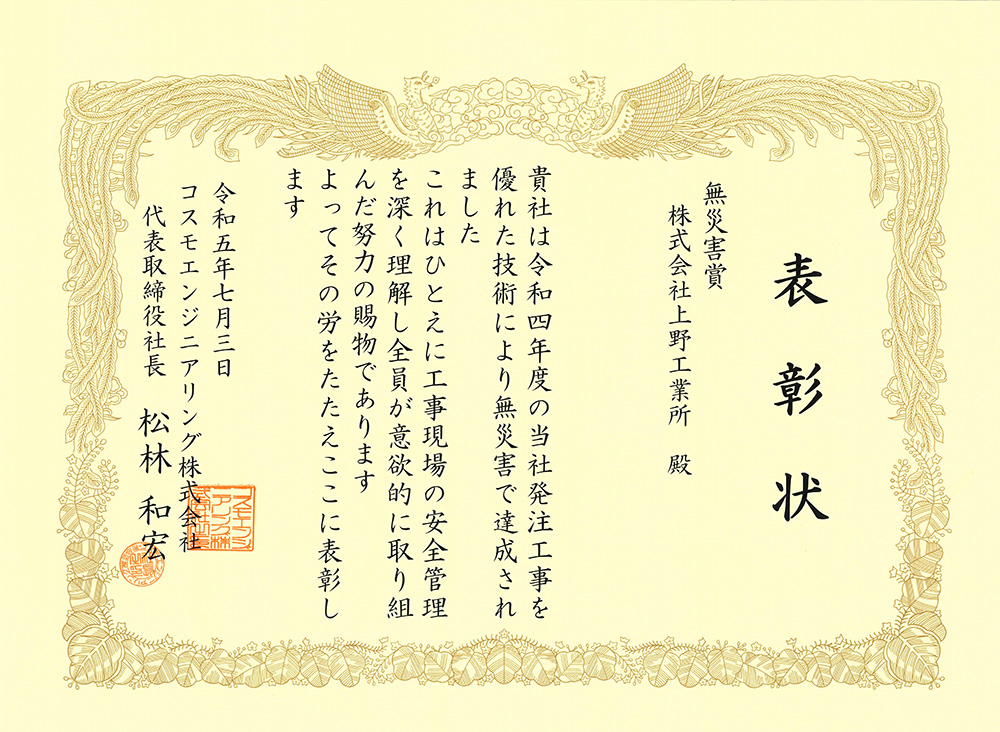 表彰状
無災害賞
株式会社上野工業所 殿
貴社は令和四年度の当社発注工事を
優れた技術により無災害で達成され
ました
これはひとえに工事現場の安全管理
を深く理解し全員が意欲的に取り組
んだ努力の賜物であります
よってその労をたたえここに表彰し
ます
令和五年七月三日
コスモエンジニアリング株式会社
代表取締役社長 松林和宏